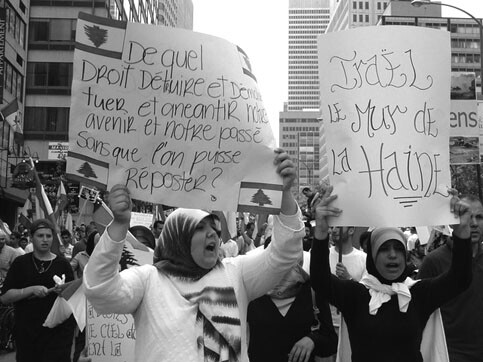 De quel
Droit Détruire et Démolir
tuer et anéantir notre
avenir et notre passé
sans que l'on puisse
Riposter?
Israël
Le Mur de
La Haine
ens